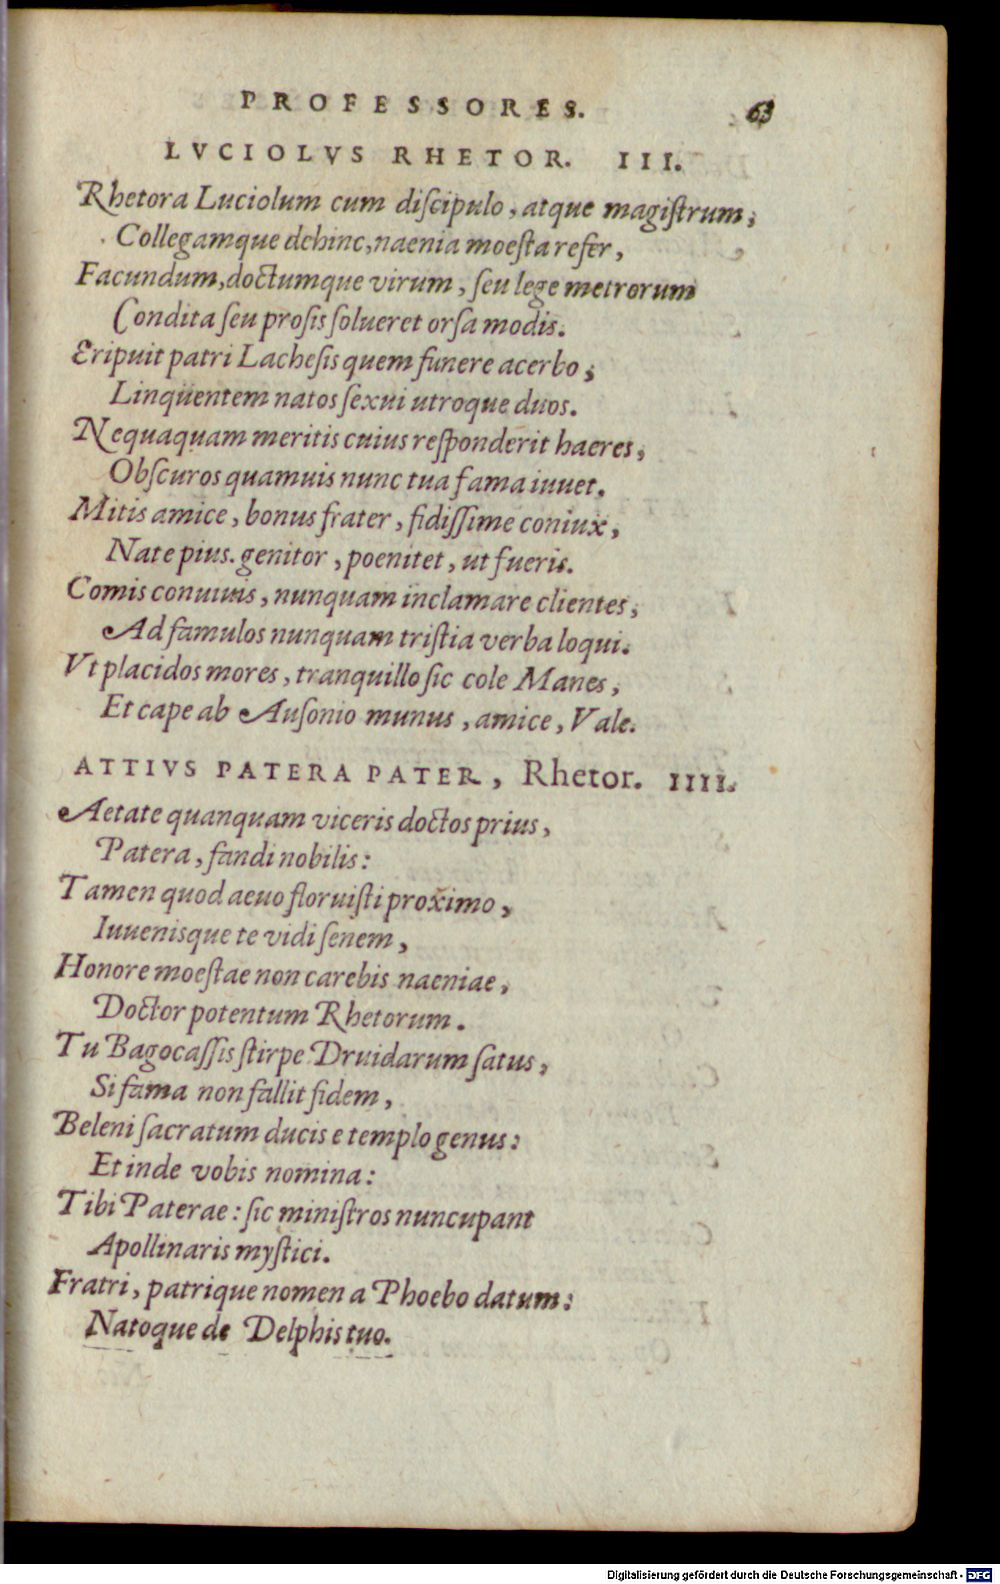 PROFESSORES. 63
LVCIOLVS RHETOR. III.
Rhetora Luciolum cum diſcipulo, atque magiſtrum,
Collegamque dehinc, naenia moeſta refer,
Facundum, doctumque virum, ſeu lege metrorum
Condita ſeu proſis ſolueret orſa modis.
Eripuit patri Lacheſis quem funere acerbo,
Linquentem natos ſexui utroque duos.
Nequaquam meritis cuius reſponderit haeres,
Obſcuros quamuis nunc tua fama iuuet.
Mitis amice, bonus frater, fidiſſime coniux,
Nate pius. genitor, poenitet, ut fueris.
Comis conuiuis, nunquam inclamare clientes,
Ad famulos nunquam triſtia verba loqui.
Vt placidos mores, tranquillo ſic cole Manes,
Et cape ab Auſonio munus, amice, Vale.
ATTIVS PATERA PATER, Rhetor. IIII.
Aetate quanquam viceris doctos prius,
Patera, fandi nobilis:
Tamen quod aeuo floruiſti proximo,
Iuuenisque te vidi ſenem,
Honore moeſtae non carebis naeniae,
Doctor potentum Rhetorum.
Tu Bagocaſſis ſtirpe Druidarum ſatus,
Si fama non fallit fidem,
Beleni ſacratum ducis e templo genus:
Et inde vobis nomina:
Tibi Paterae: ſic miniſtros nuncupant
Apollinaris myſtici.
Fratri, patrique nomen a Phoebo datum:
Natoque de Delphis tuo.
Digitalisierung gefördert durch die Deutsche Forschungsgemeinschaft - DFG